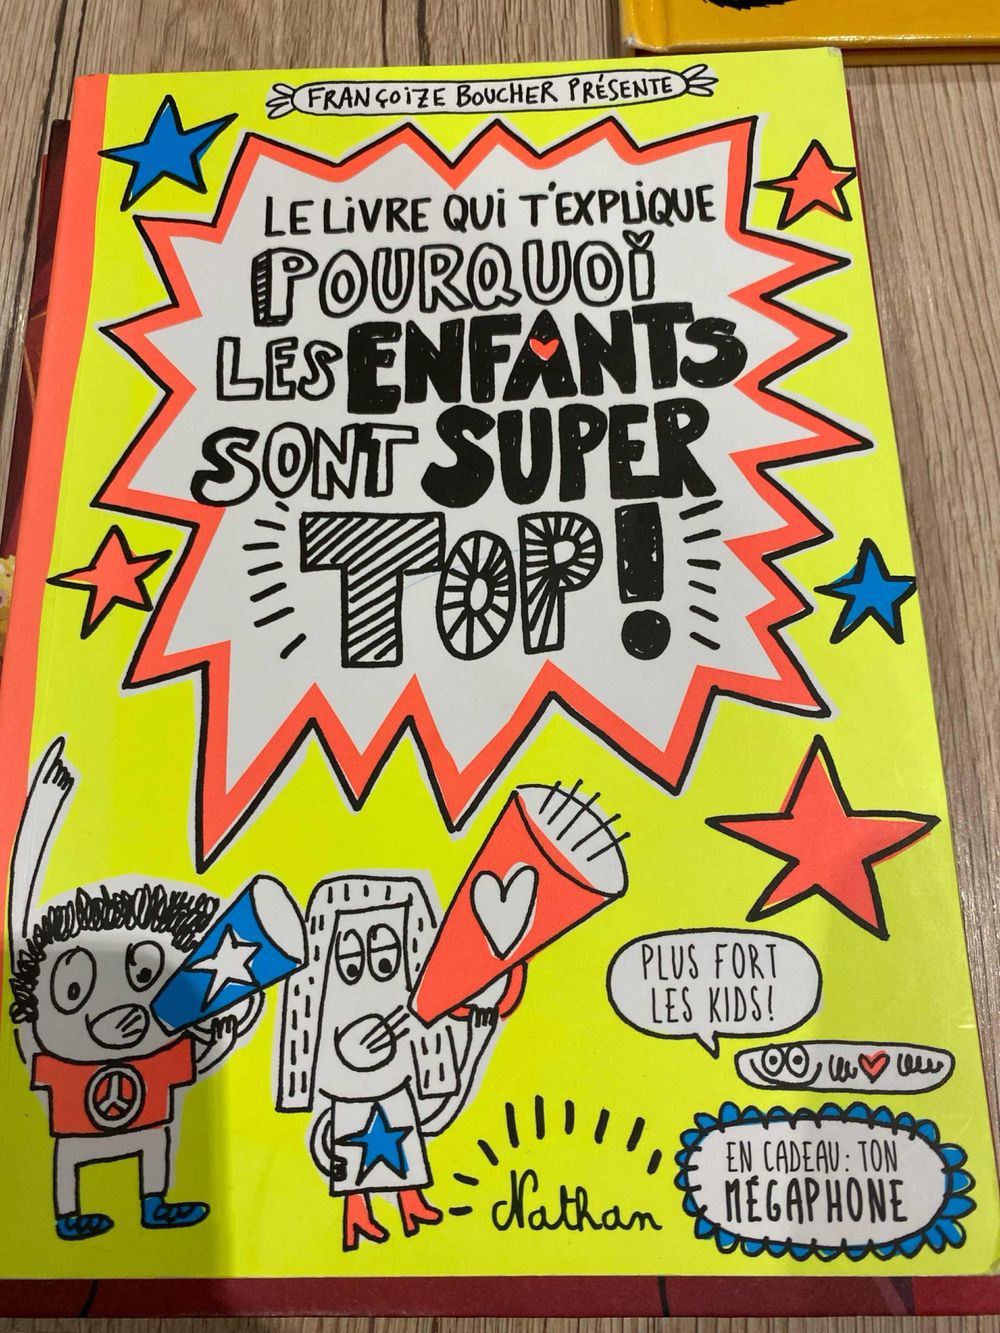 FRANÇOIZE BOUCHER PRÉSENTE
LE LIVRE QUI T'EXPLIQUE
POURQUOI
LES ENFANTS
SONT SUPER
TOP!
PLUS FORT
LES KIDS!
EN CADEAU: TON
MÉGAPHONE
Nathan